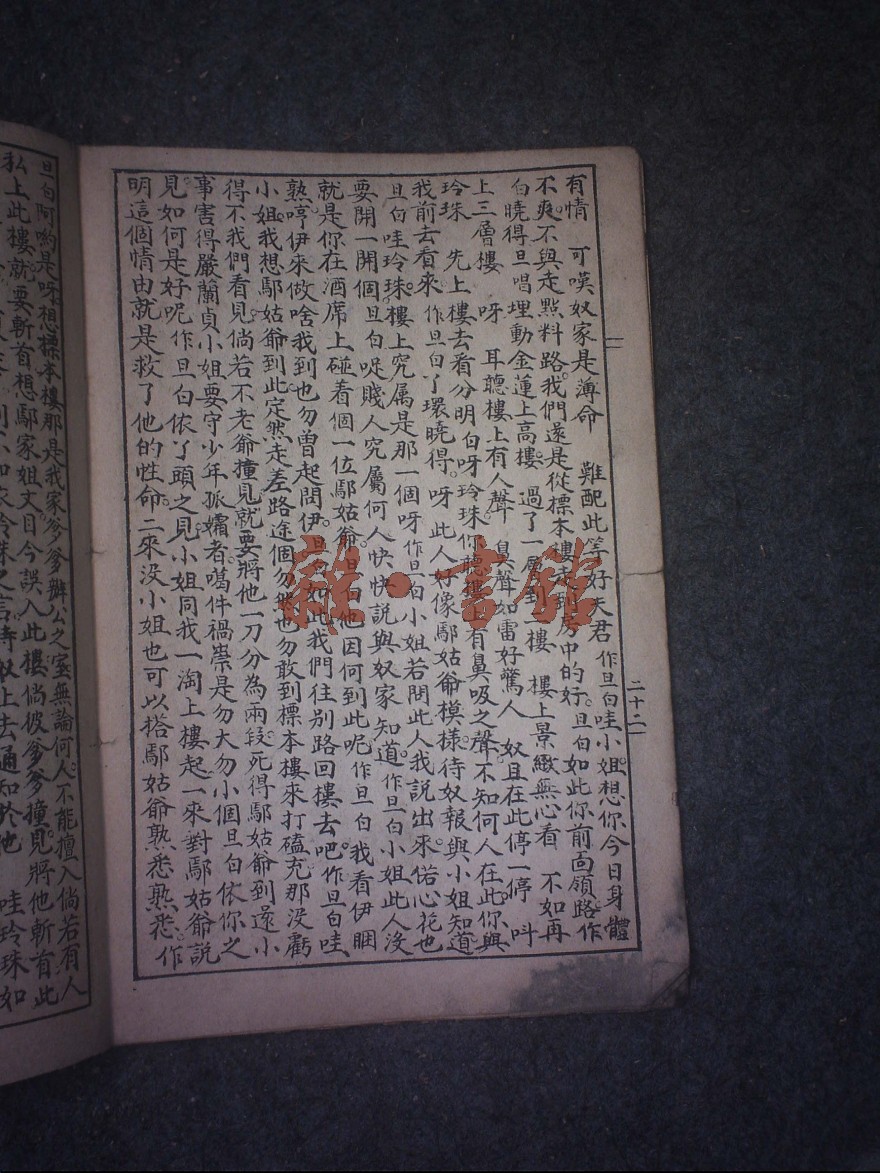 有情　可嘆奴家是薄命　難配此等好夫君作旦白哇小姐想你今日身體
不爽不與走點料路我們還是從標本樓走到房中的好旦白如此你前面領路作
白曉得旦唱埋動金蓮上高樓　過了一層到二樓　樓上景緻無心看　不如再
上三層樓　呀　耳聽樓上有人聲　鼻聲如雷好驚人　奴且在此停一停　叫
玲珠　先上樓去看分明白呀玲珠你聽樓上有鼻吸之聲不知何人在此你與
我前去看來　作旦白丫環曉得呀　此人好像鄢姑爺模樣待奴報與小姐知道
旦白哇玲珠樓上究属是那一個呀作旦白小姐若問此人我說出來偌心花也
要開一開個旦白啶賤人究屬何人快快說與奴家知道作旦白小姐此人沒
就是你在酒席上碰着個一位鄢姑爺旦白他因何到此呢作旦白我看伊睏
熟哼伊來做啥我到也勿曾起問伊旦白如此我們往別路回樓去吧作旦白哇
小姐我想鄢姑爺到此定然走差路途個勿然也勿敢到標本樓來打磕充那沒虧
得不我們看見倘若不老爺撞見就要將他一刀分為兩段死得鄢姑爺到還小
事害得嚴蘭貞小姐要守少年孤孀者噶件禍祟是勿大勿小個旦白依你之
見如何是好呢作旦白依了頭之見小姐同我一淘上樓起一來對鄢姑爺說
明這個情由就是救了他的性命二來沒小姐也可以搭鄢姑爺熟悉熟悉作
二十二
旦白阿喲是呀想標本樓那是我家爹爹辦公之室無論何人不能擅入倘若有人
私上此樓就要斬首想鄢家姐丈目今誤入此樓倘彼爹爹撞見將他斬首此
玲珠之言待奴上去通知於他　哇玲珠如
雜·書館